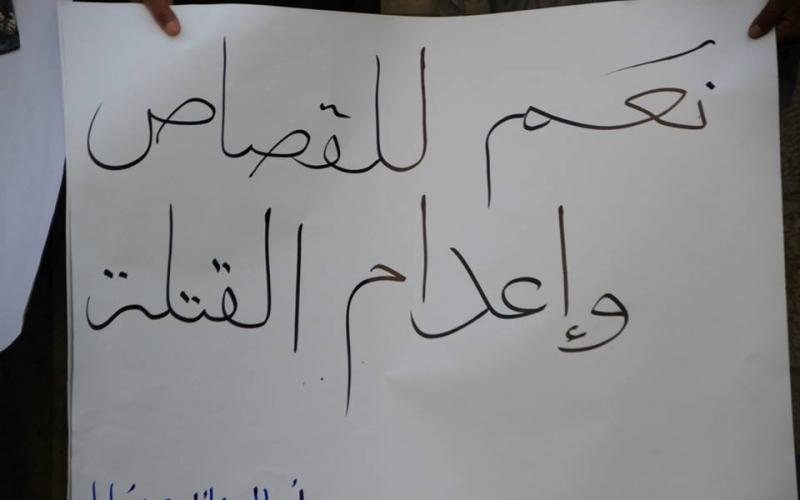 نَعَم للقصاص
وإعدام القتلة